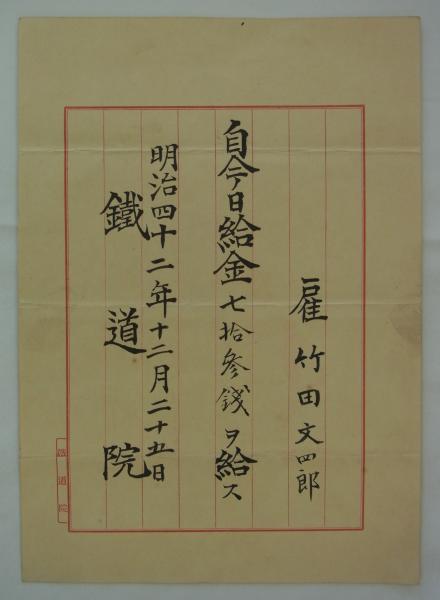 雇 竹田文四郎
自今日給金七拾参錢ヲ給ス
明治四十二年十二月二十五日
鐵道院
鐵道院